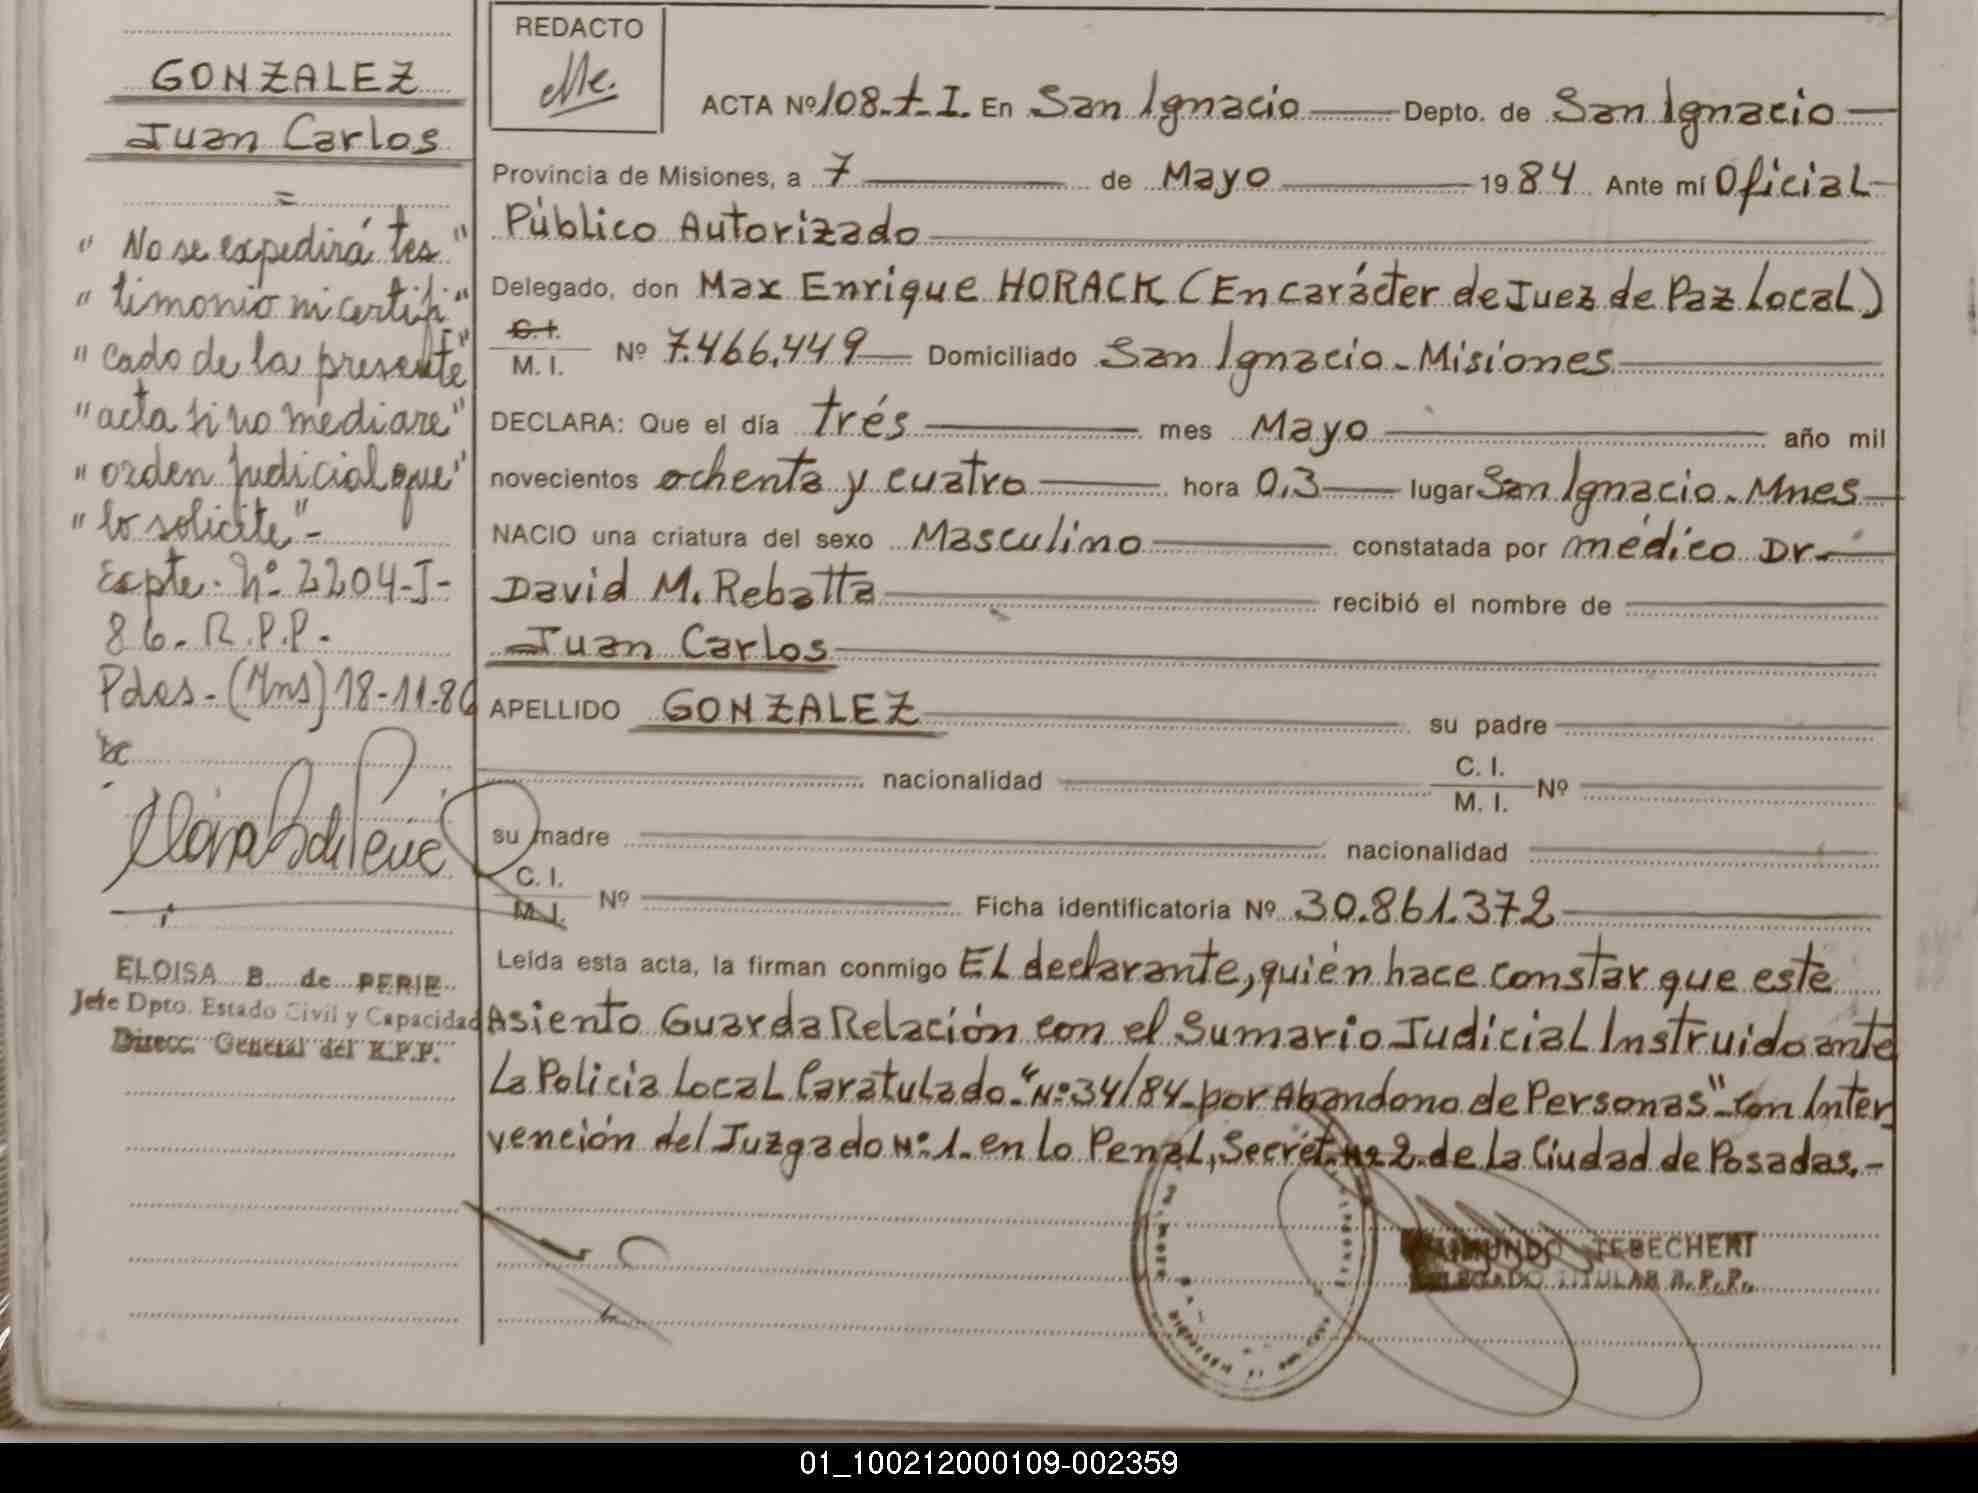 GONZALEZ
Juan Carlos
=
" No se expedirá tes "
" timonio ni certifi "
" cado de la presente "
" acta si no mediare "
" orden judicial que "
" lo solicite " -
Expte. Nº 2204-I-
86. R.P.P.
Pdas - (Mns) 18-11-86
ELOISA B. de PERIE
Jefe Dpto. Estado Civil y Capacidad
Direcc. General del R.P.P.
REDACTO
ACTA Nº 108-t-I. En San Ignacio Depto. de San Ignacio
Provincia de Misiones, a 7 de Mayo 1984 Ante mí Oficial
Público Autorizado
Delegado, don Max Enrique HORACK (En carácter de Juez de Paz Local)
C. I.
M. I. Nº 7.466.449 Domiciliado San Ignacio - Misiones
DECLARA: Que el día trés mes Mayo año mil
novecientos ochenta y cuatro hora 0,3 lugar San Ignacio - Mnes
NACIO una criatura del sexo Masculino constatada por médico Dr.
David M. Rebatta recibió el nombre de
Juan Carlos
APELLIDO GONZALEZ su padre
nacionalidad C. I.
M. I. Nº
su madre nacionalidad
C. I.
M. I. Nº Ficha identificatoria Nº 30.861.372
Leída esta acta, la firman conmigo El declarante, quién hace constar que este
Asiento Guarda Relación con el Sumario Judicial Instruido ante
La Policia Local Caratulado "Nº 34/84 - por Abandono de Personas" - con Inter
vención del Juzgado Nº 1. en lo Penal, Secret. Nº 2. de La Ciudad de Posadas. -
RAIMUNDO TEBECHERT
DELEGADO TITULAR R.P.P.
01_100212000109-002359